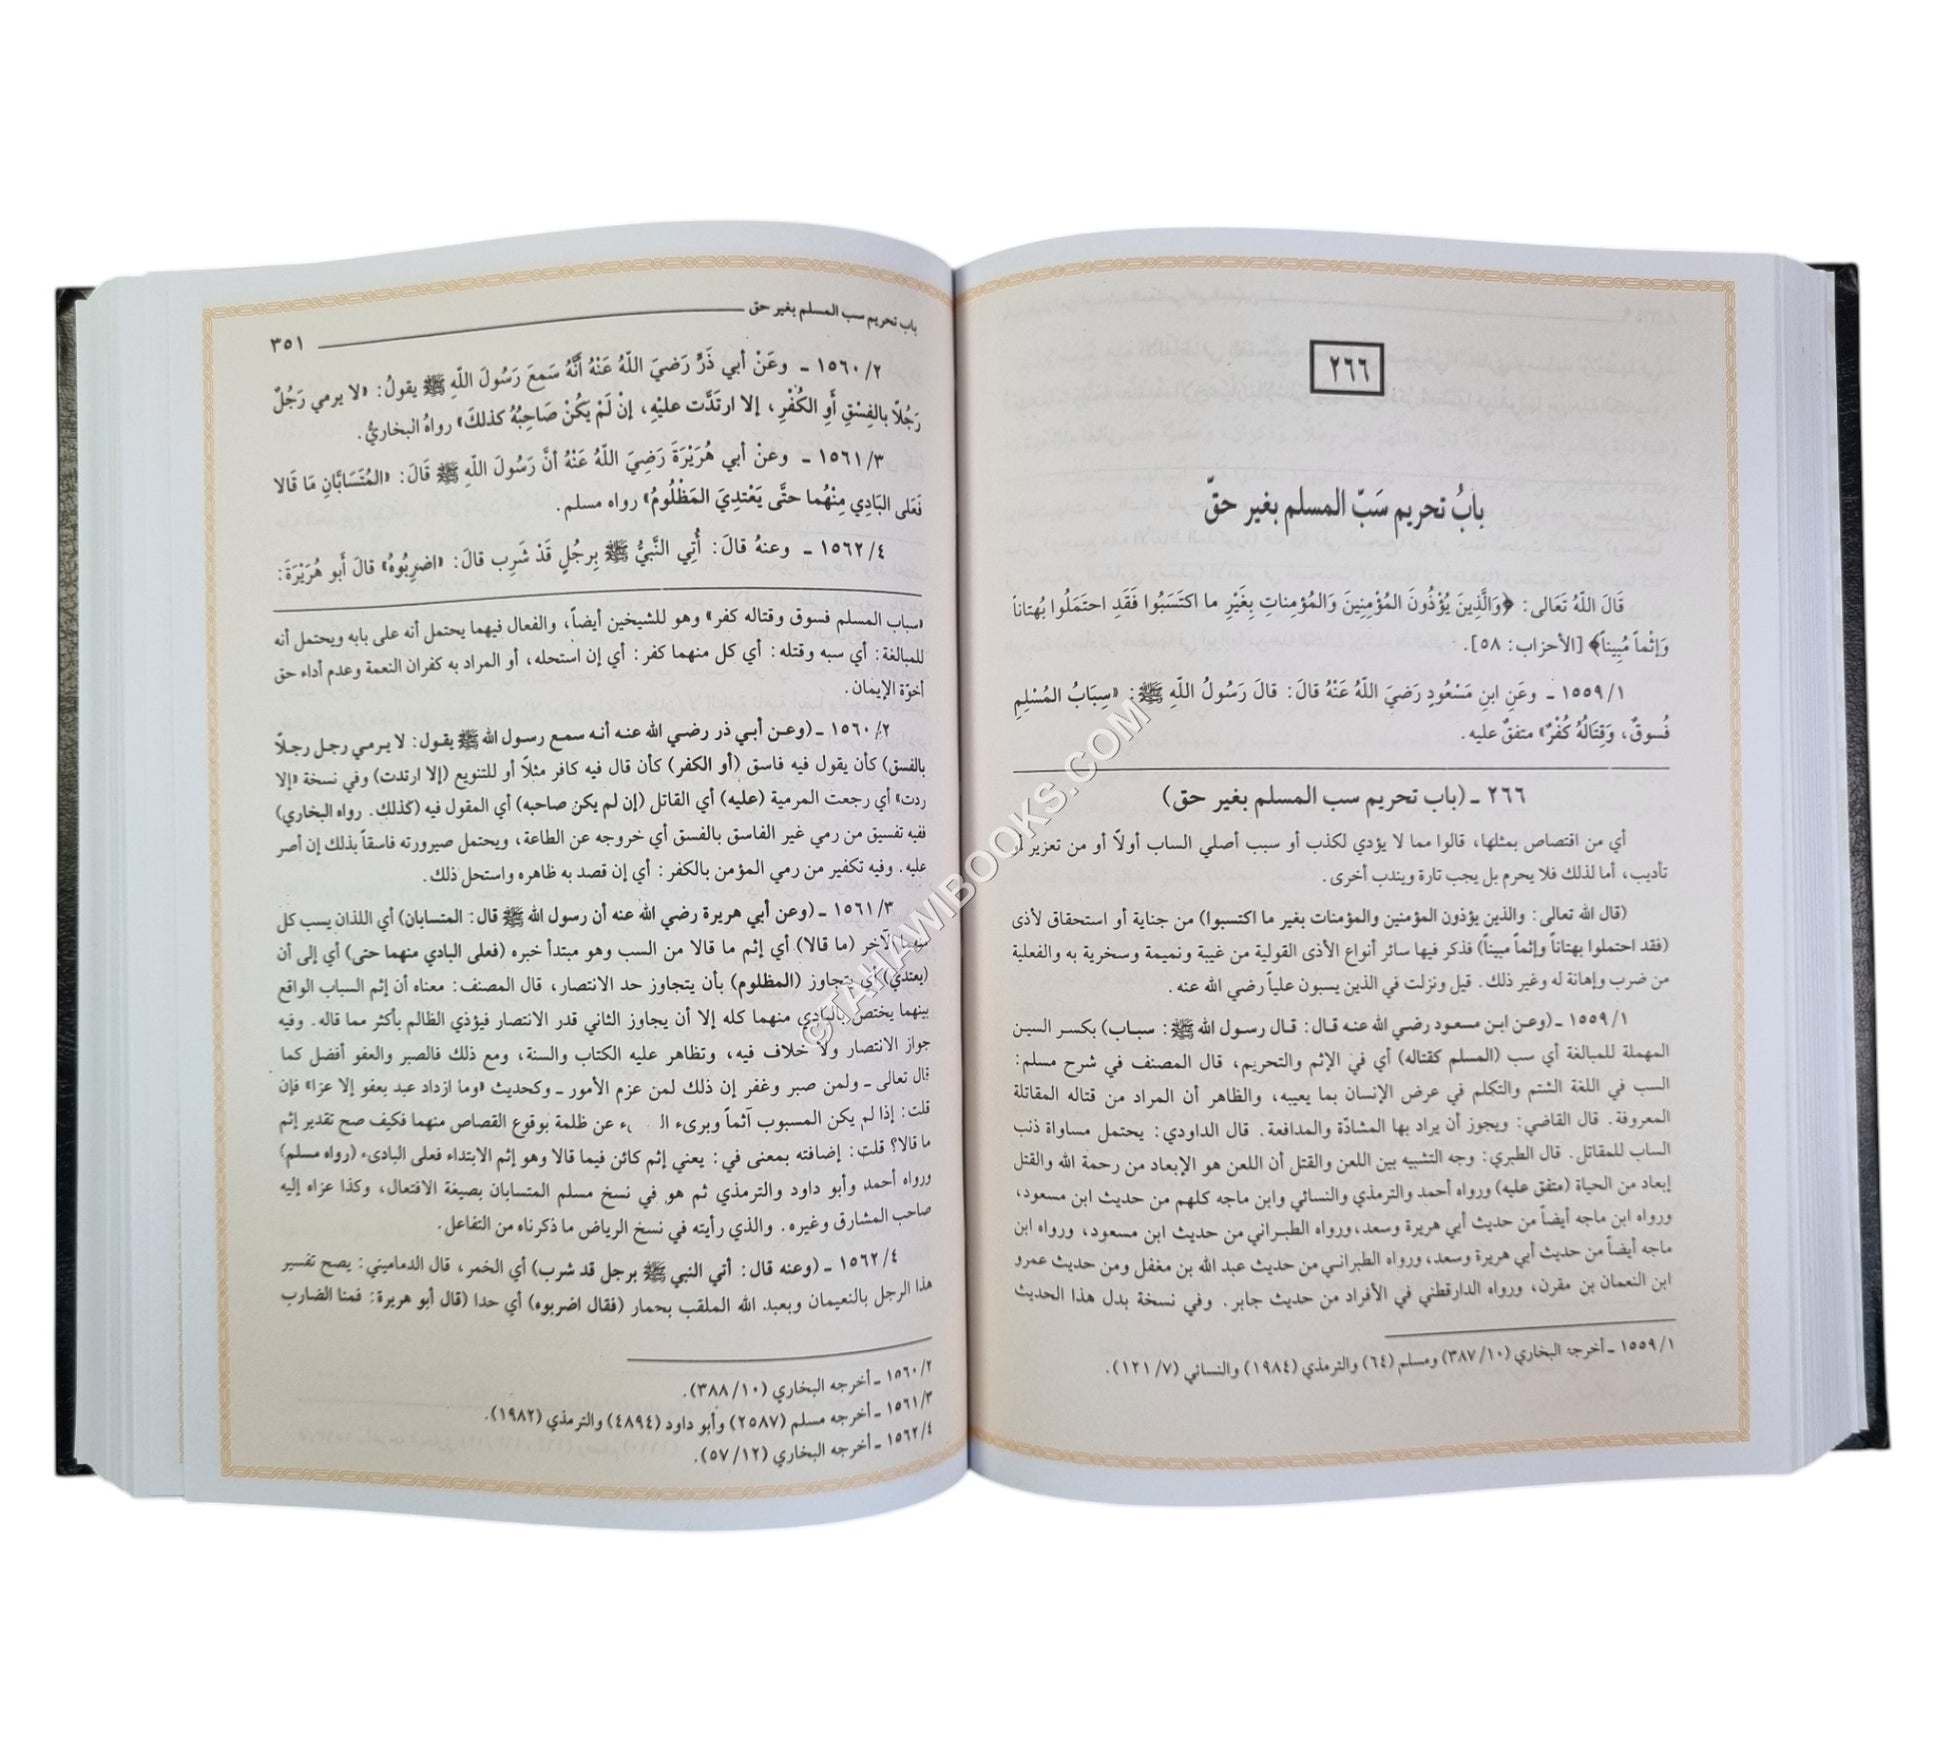 ٢٦٦
بابُ تحريم سَبّ المسلم بغير حقّ
قَالَ اللّهُ تَعَالى: ﴿وَالَّذِينَ يُؤْذُونَ المُؤْمِنِينَ وَالمُؤمِناتِ بِغَيْرِ ما اكتَسَبُوا فَقَدِ احتَمَلُوا بُهتاناً
وَإثْماً مُبِيناً﴾ [الأحزاب: ٥٨].
١٥٥٩/١ ـ وعَنِ ابنِ مَسْعُودٍ رَضيَ اللّهُ عَنْهُ قالَ: قالَ رَسُولُ اللّهِ ﷺ: «سِبَابُ المُسْلِمِ
فُسوقٌ، وَقِتَالُهُ كُفْرٌ» متفقٌ عليه.
٢٦٦ ـ (باب تحريم سب المسلم بغير حق)
أي من اقتصاص بمثلها، قالوا مما لا يؤدي لكذب أو سبب أصلي الساب أولاً أو من تعزير أو
تأديب، أما لذلك فلا يحرم بل يجب تارة ويندب أخرى.
(قال الله تعالى: والذين يؤذون المؤمنين والمؤمنات بغير ما اكتسبوا) من جناية أو استحقاق لأذى
(فقد احتملوا بهتاناً وإثماً مبيناً) فذكر فيها سائر أنواع الأذى القولية من غيبة ونميمة وسخرية به والفعلية
من ضرب وإهانة له وغير ذلك. قيل ونزلت في الذين يسبون علياً رضي الله عنه.
١٥٥٩/١ ـ (وعن ابن مسعود رضي الله عنه قال: قال رسول الله ﷺ: سباب) بكسر السين
المهملة للمبالغة أي سب (المسلم كقتاله) أي في الإثم والتحريم، قال المصنف في شرح مسلم:
السب في اللغة الشتم والتكلم في عرض الإنسان بما يعيبه، والظاهر أن المراد من قتاله المقاتلة
المعروفة. قال القاضي: ويجوز أن يراد بها المشادّة والمدافعة. قال الداودي: يحتمل مساواة ذنب
الساب للمقاتل. قال الطبري: وجه التشبيه بين اللعن والقتل أن اللعن هو الإبعاد من رحمة الله والقتل
إبعاد من الحياة (متفق عليه) ورواه أحمد والترمذي والنسائي وابن ماجه كلهم من حديث ابن مسعود،
ورواه ابن ماجه أيضاً من حديث أبي هريرة وسعد، ورواه الطبراني من حديث ابن مسعود، ورواه ابن
ماجه أيضاً من حديث أبي هريرة وسعد، ورواه الطبراني من حديث عبد الله بن مغفل ومن حديث عمرو
ابن النعمان بن مقرن، ورواه الدارقطني في الأفراد من حديث جابر. وفي نسخة بدل هذا الحديث
١٥٥٩/١ ـ أخرجه البخاري (٣٨٧/١٠) ومسلم (٦٤) والترمذي (١٩٨٤) والنسائي (١٢١/٧).
باب تحريم سب المسلم بغير حق ٣٥١
١٥٦٠/٢ ـ وعَنْ أبي ذَرٍّ رَضيَ اللّهُ عَنْهُ أنَّهُ سَمعَ رَسُولَ اللّهِ ﷺ يقولُ: «لا يرمي رَجُلٌ
رَجُلاً بالفِسْقِ أَوِ الكُفْرِ، إلا ارتَدَّت عليْهِ، إنْ لَمْ يَكُنْ صَاحِبُهُ كذلكَ» رواهُ البخاريُّ.
١٥٦١/٣ ـ وعنْ أبي هُرَيْرَةَ رَضِيَ اللّهُ عَنْهُ أنَّ رَسُولَ اللّهِ ﷺ قَالَ: «المُتَسَابَّانِ مَا قَالا
فَعَلى البَادِي مِنْهُما حتَّى يَعْتَدِيَ المَظْلُومُ» رواه مسلم.
١٥٦٢/٤ ـ وعنهُ قالَ: أُتِي النَّبيُّ ﷺ بِرجُلٍ قَدْ شَرِب قالَ: «اضرِبُوهُ» قالَ أبو هُرَيْرَةَ:
«سباب المسلم فسوق وقتاله كفر» وهو للشيخين أيضاً، والفعال فيهما يحتمل أنه على بابه ويحتمل أنه
للمبالغة: أي سبه وقتله: أي كل منهما كفر: أي إن استحله، أو المراد به كفران النعمة وعدم أداء حق
أخوّة الإيمان.
١٥٦٠/٢ ـ (وعن أبي ذر رضي الله عنه أنه سمع رسول الله ﷺ يقول: لا يرمي رجل رجلاً
بالفسق) كأن يقول فيه فاسق (أو الكفر) كأن قال فيه كافر مثلاً أو للتنويع (إلا ارتدت) وفي نسخة «إلا
ردت» أي رجعت المرمية (عليه) أي القائل (إن لم يكن صاحبه) أي المقول فيه (كذلك. رواه البخاري)
ففيه تفسيق من رمي غير الفاسق بالفسق أي خروجه عن الطاعة، ويحتمل صيرورته فاسقاً بذلك إن أصر
عليه. وفيه تكفير من رمي المؤمن بالكفر: أي إن قصد به ظاهره واستحل ذلك.
١٥٦١/٣ ـ (وعن أبي هريرة رضي الله عنه أن رسول الله ﷺ قال: المتسابان) أي اللذان يسب كل
منهما الآخر (ما قالا) أي إثم ما قالا من السب وهو مبتدأ خبره (فعلى البادي منهما حتى) أي إلى أن
(يعتدي) أي يتجاوز (المظلوم) بأن يتجاوز حد الانتصار، قال المصنف: معناه أن إثم السباب الواقع
بينهما يختص بالبادي منهما كله إلا أن يجاوز الثاني قدر الانتصار فيؤذي الظالم بأكثر مما قاله. وفيه
جواز الانتصار ولا خلاف فيه، وتظاهر عليه الكتاب والسنة، ومع ذلك فالصبر والعفو أفضل كما
قال تعالى ـ ولمن صبر وغفر إن ذلك لمن عزم الأمور ـ وكحديث «وما ازداد عبد بعفو إلا عزا» فإن
قلت: إذا لم يكن المسبوب آثماً وبرىء عن ظلمة بوقوع القصاص منهما فكيف صح تقدير إثم
ما قالا؟ قلت: إضافته بمعنى في: يعني إثم كائن فيما قالا وهو إثم الابتداء فعلى البادىء (رواه مسلم)
ورواه أحمد وأبو داود والترمذي ثم هو في نسخ مسلم المتسابان بصيغة الافتعال، وكذا عزاه إليه
صاحب المشارق وغيره. والذي رأيته في نسخ الرياض ما ذكرناه من التفاعل.
١٥٦٢/٤ ـ (وعنه قال: أتي النبي ﷺ برجل قد شرب) أي الخمر، قال الدماميني: يصح تفسير
هذا الرجل بالنعيمان وبعبد الله الملقب بحمار (فقال اضربوه) أي حدا (قال أبو هريرة: فمنا الضارب
١٥٦٠/٢ ـ أخرجه البخاري (٣٨٨/١٠).
١٥٦١/٣ ـ أخرجه مسلم (٢٥٨٧) وأبو داود (٤٨٩٤) والترمذي (١٩٨٢).
١٥٦٢/٤ ـ أخرجه البخاري (٥٧/١٢).
©TAHAWIBOOKS.COM